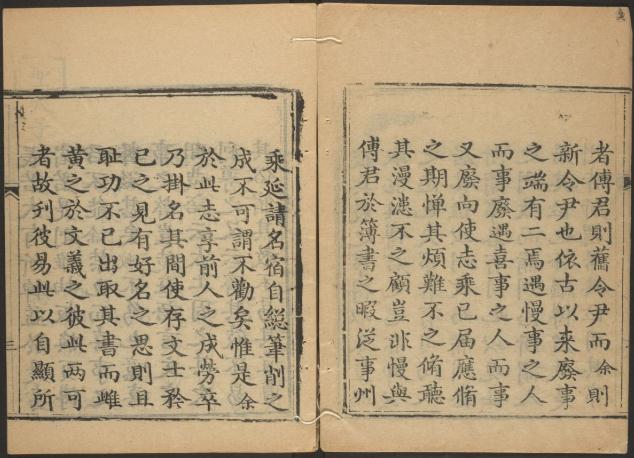 者傅君則舊令尹而余則
新令尹也依古以来廢事
之端有二焉遇慢事之人
而事廢遇喜事之人而事
又廢向使志乘已届應脩
之期憚其煩難不之脩聽
其漫漶不之顧豈非慢與
傅君於簿書之暇泛事州
乘延請名宿自縂筆削之
成不可謂不勸矣惟是余
於此志享前人之成勞卒
乃掛名其間使存文士矜
已之見有好名之思則且
耻功不已出取其書而雌
黄之於文義之彼此两可
者故刋彼易此以自顯所
三